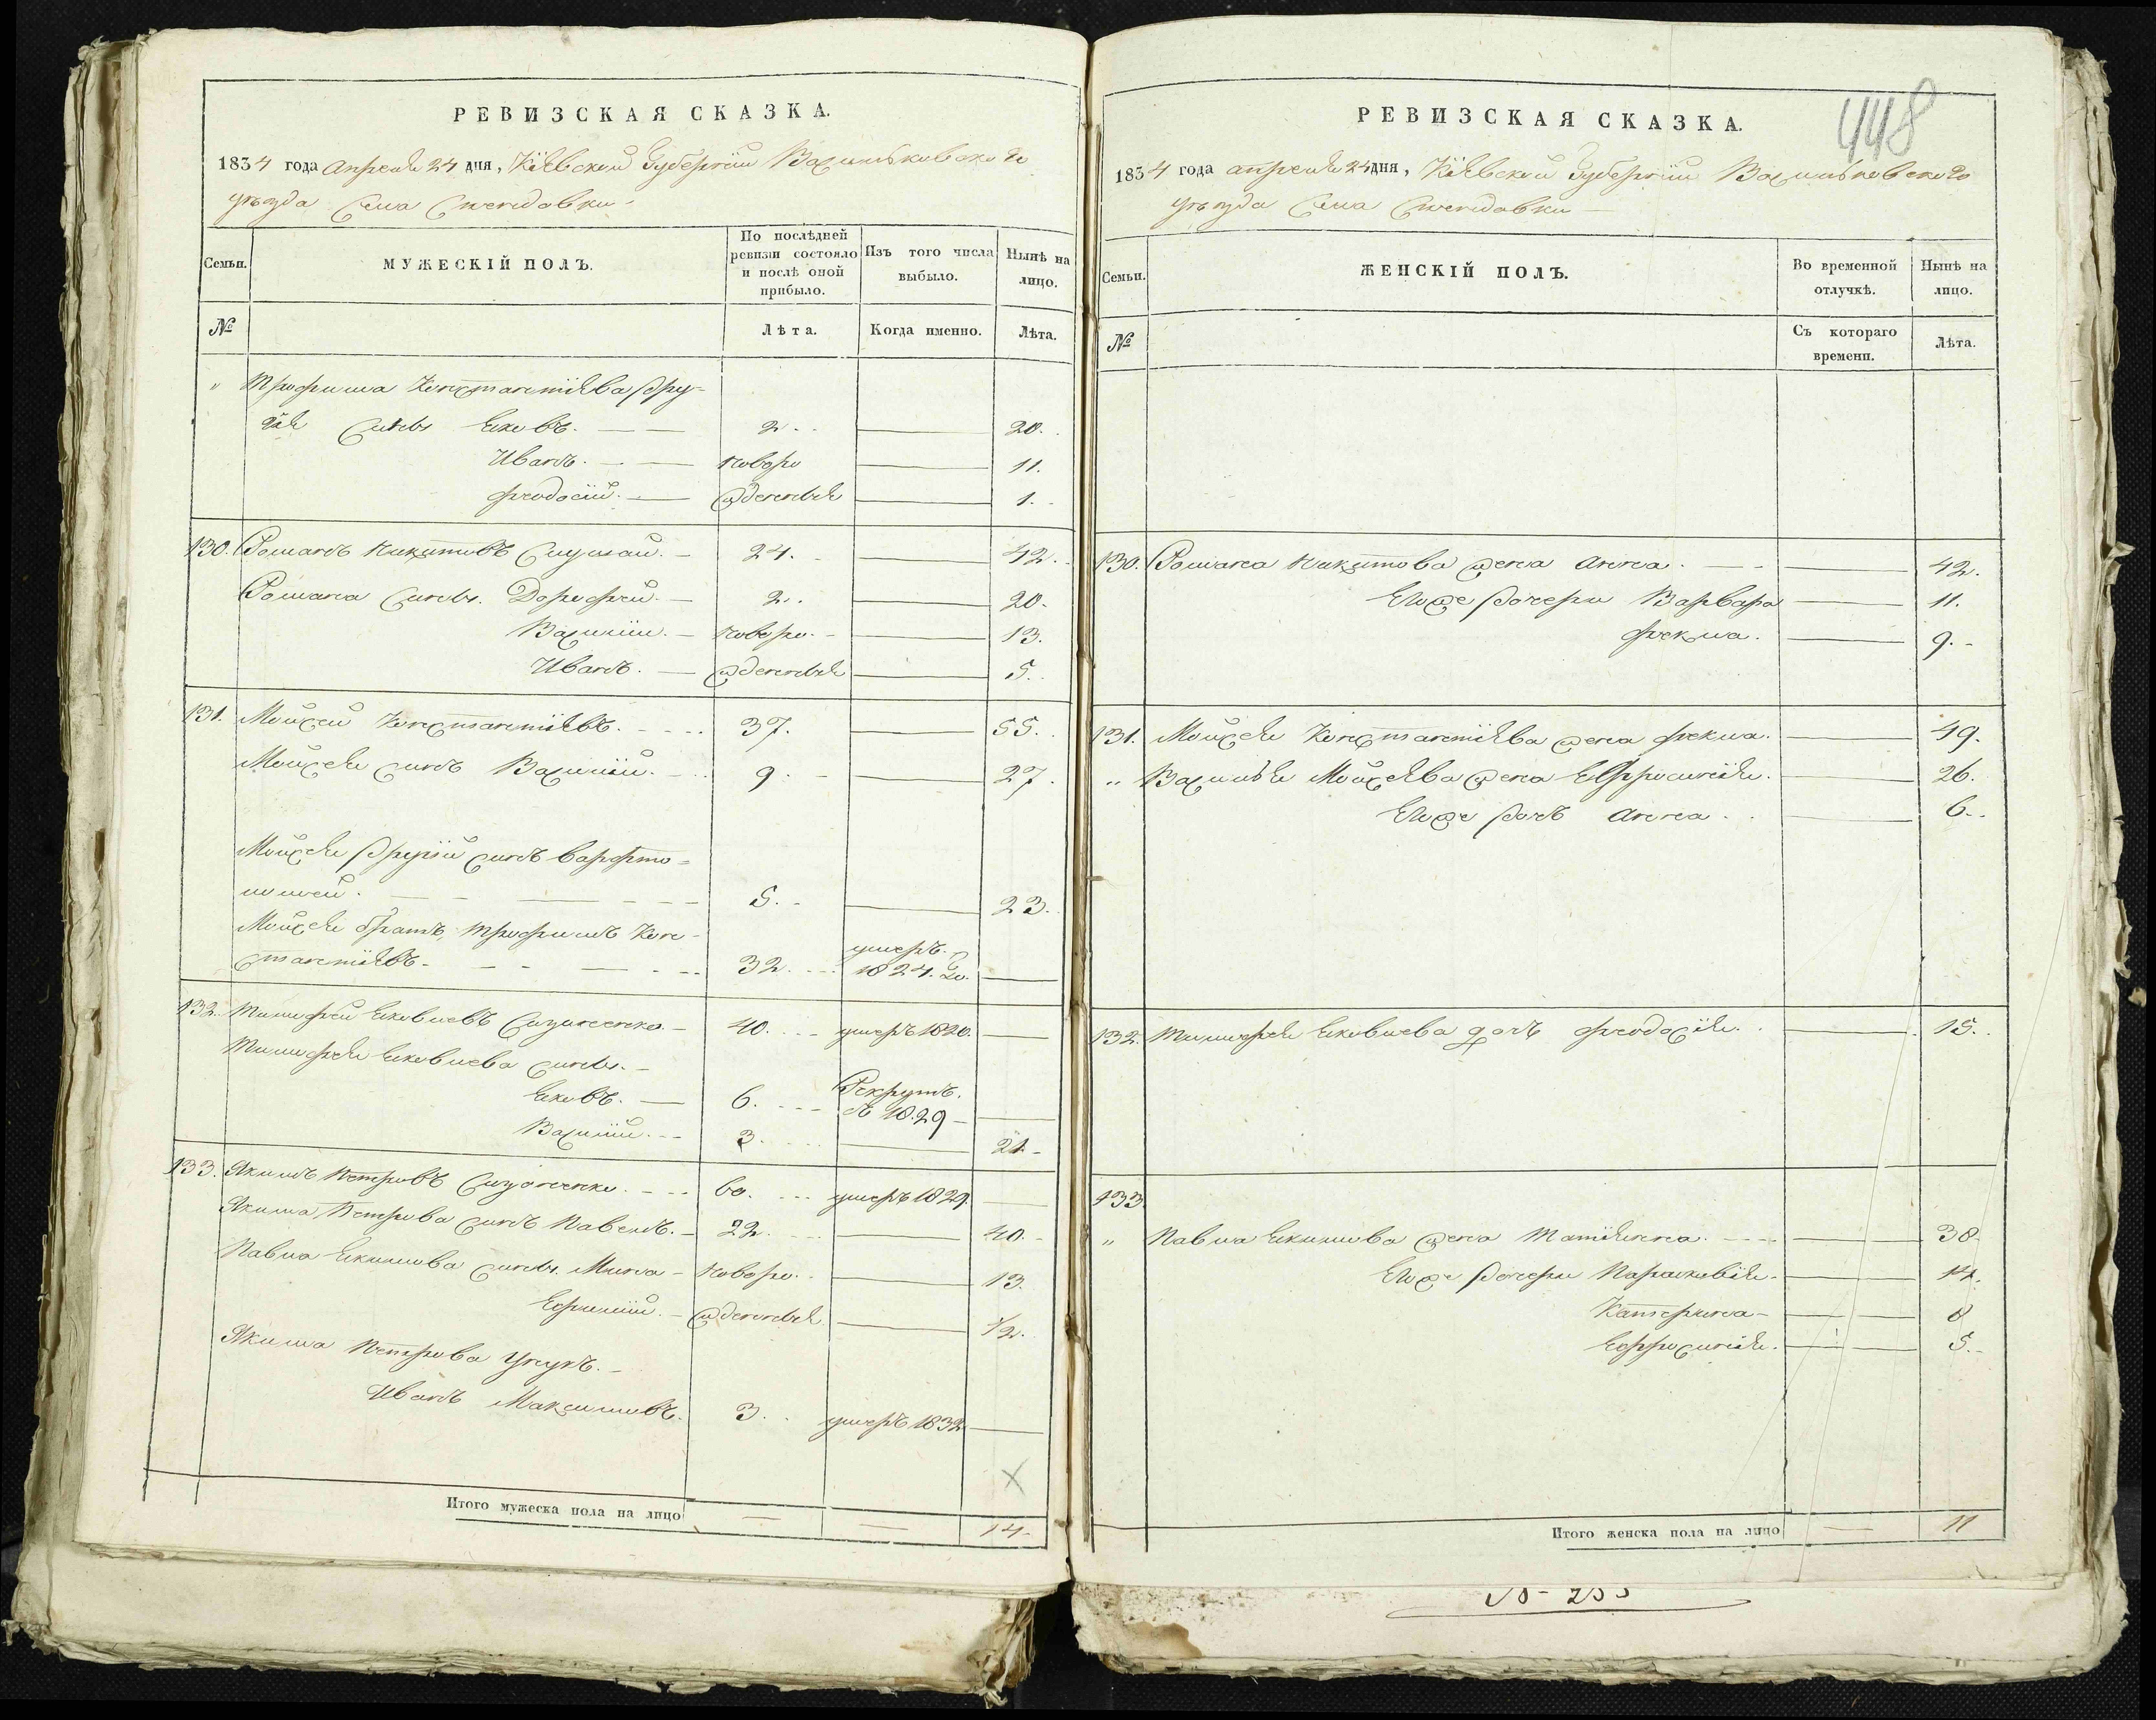 РЕВИЗСКАЯ СКАЗКА.
1834 года апреля 24 дня, Кіевской Губерніи Васильковскаго
уѣзда Села
Семьи.
МУЖЕСКІЙ ПОЛЪ.
По послѣдней ревизіи состояло и послѣ оной прибыло.
Изъ того числа выбыло.
Нынѣ на лицо.
№
Лѣта.
Когда именно.
Лѣта.
" Трофима Константіева дру=
гія сыны Яковъ. 2. 20.
Иванъ. новоро 11.
Феодосій. жденныя 1.
130. Романъ Никитовъ 24. 42.
Романа сыны. Дорофей. 2. 20.
Василій. новоро. 13.
Иванъ. жденныя 5.
131. Мойсей Константіевъ. 37. 55.
Мойсея сынъ Василій. 9. 27.
Мойсея другій сынъ Варфто=
ломей. 5. 23.
Мойсея братъ, Трофимъ Кон-
стантіевъ. 32. умеръ. 1824. го.
132. Тимофей Яковлевъ 40. умеръ 1820.
Тимофея Яковлева сыны.
Яковъ. 6. Рекрутъ. въ 1829
Василій. 3. 21.
133. Якимъ Петровъ 60. умеръ 1829.
Якима Петрова сынъ Павелъ. 22. 40.
Павла Якимова сыны. Мина новоро. 13.
Ефимій. жденныя 1/2.
Якима Петрова унукъ.
Иванъ Максимовъ. 3. умеръ 1832
Итого мужеска пола на лицо 14.
448
РЕВИЗСКАЯ СКАЗКА.
1834 года апреля 24 дня, Кіевской Губерніи Васильковскаго
уѣзда Села
Семьи.
ЖЕНСКІЙ ПОЛЪ.
Во временной отлучкѣ.
Нынѣ на лицо.
№
Съ котораго времени.
Лѣта.
130. Романа Никитова жена Анна. 42.
Егоже дочери Варвара 11.
Фекла. 9.
131. Мойсея Константіева жена Фекла. 49.
" Василія Мойсеева жена Евфросинія. 26.
Егоже дочь Анна. 6.
132. Тимофея Яковлева дочь Феодосія. 15.
133.
" Павла Якимова жена Татіянна. 38.
Егоже дочери Параскивія. 14.
Катерина 8
Ефросинія. 5.
Итого женска пола на лицо 11